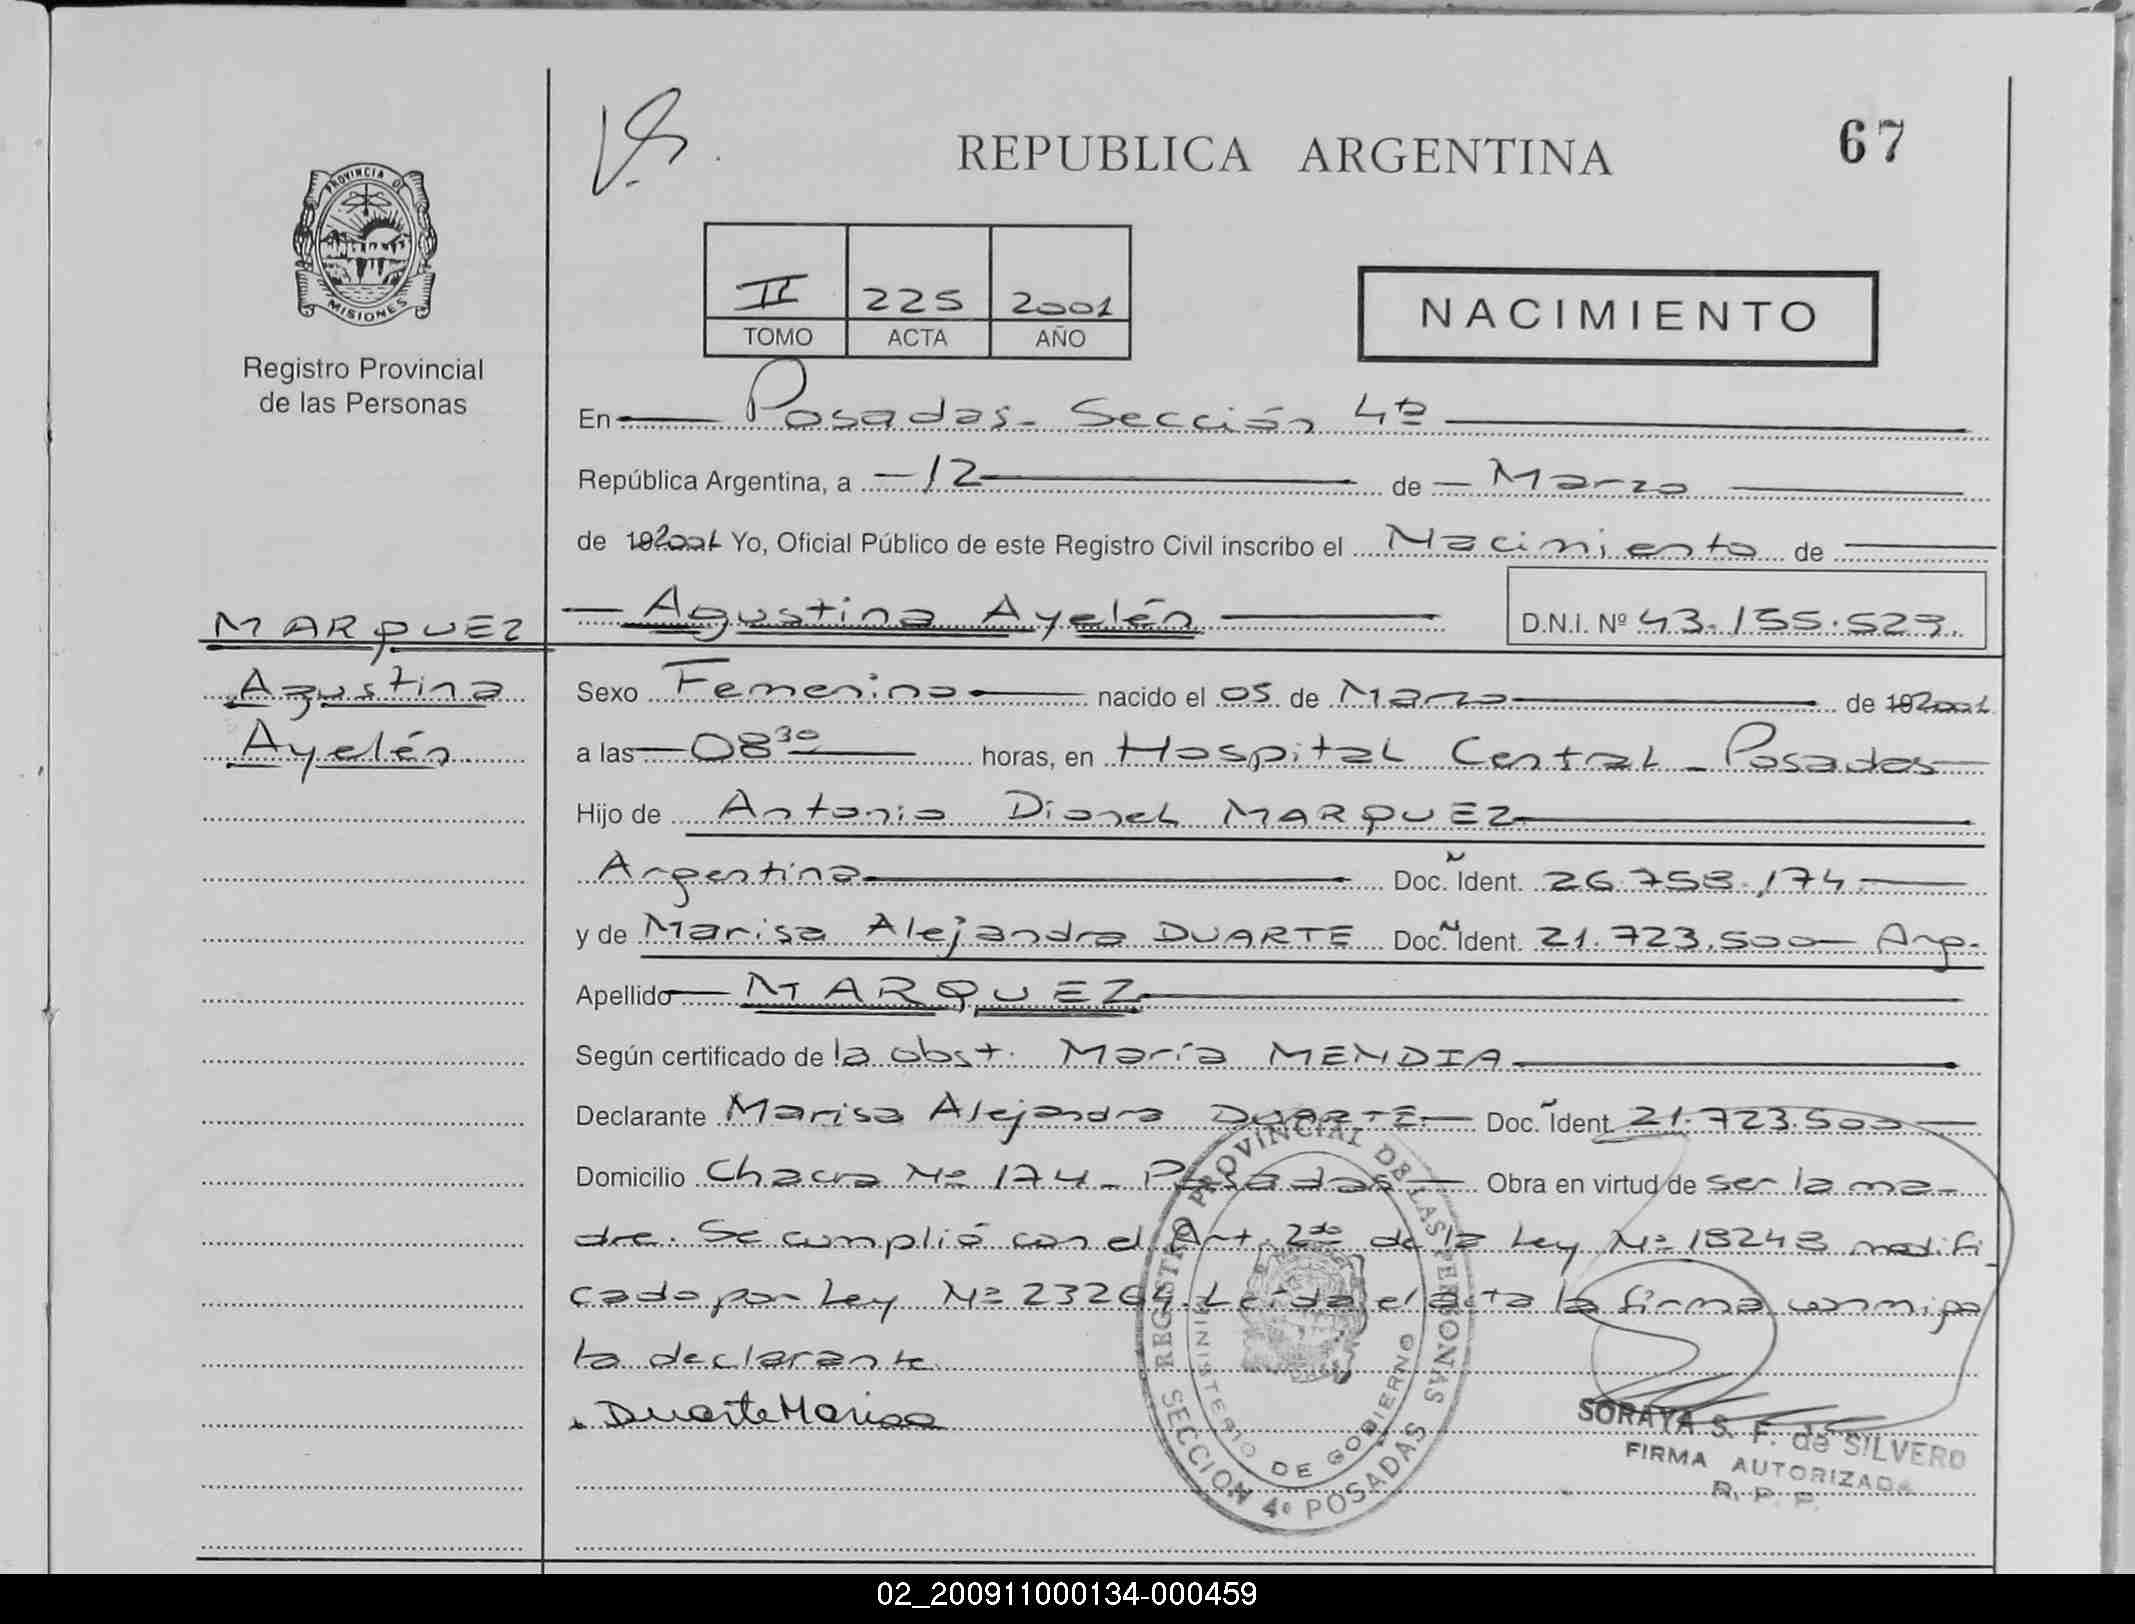 REPUBLICA ARGENTINA
67
PROVINCIA DE
MISIONES
Registro Provincial
de las Personas
II 225 2001
TOMO ACTA AÑO
NACIMIENTO
En Posadas - Sección 4ta
República Argentina, a - 12 de - Marzo
de 192001 Yo, Oficial Público de este Registro Civil inscribo el Nacimiento de
Agustina Ayelén
D.N.I. Nº 43.155.523.
MARQUEZ
Agustina
Ayelén.
Sexo Femenino nacido el 05 de Marzo de 192001
a las 08 30 horas, en Hospital Central - Posadas
Hijo de Antonio Dionel MARQUEZ
Argentina Doc. Ident. 26.758.174
y de Marisa Alejandra DUARTE Doc. Ident. 21.723.500 - Arg.
Apellido MARQUEZ
Según certificado de la obst. María MENDIA
Declarante Marisa Alejandra DUARTE Doc. Ident. 21.723.500
Domicilio Chacra Nº 174 - Posadas Obra en virtud de ser la ma-
dre. Se cumplió con el Art. 2do de la Ley Nº 18248 modifi
cado por Ley Nº 23264. Leída el acta la firma conmigo
la declarante
Duarte Marisa
REGISTRO PROVINCIAL DE LAS PERSONAS
MINISTERIO DE GOBIERNO
SECCION 4º POSADAS
SORAYA S. F. de SILVERO
FIRMA AUTORIZADA
R. P. P.
02_200911000134-000459